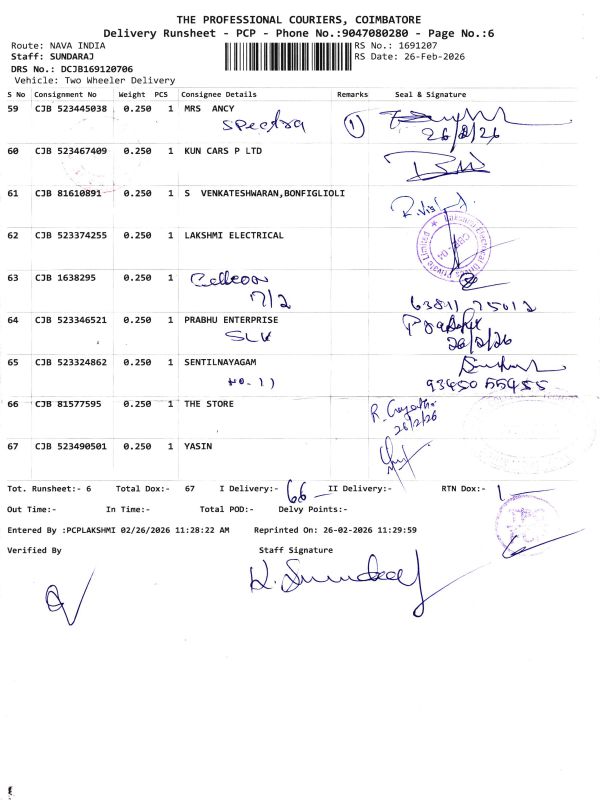 THE PROFESSIONAL COURIERS, COIMBATORE
Delivery Runsheet - PCP - Phone No.:9047080280 - Page No.:6
Route: NAVA INDIA
RS No.: 1691207
Staff: SUNDARAJ
RS Date: 26-Feb-2026
DRS No.: DCJB169120706
Vehicle: Two Wheeler Delivery
S No Consignment No Weight PCS Consignee Details Remarks Seal & Signature
59 CJB 523445038 0.250 1 MRS ANCY
Spectra 1
26/2/26
60 CJB 523467409 0.250 1 KUN CARS P LTD
61 CJB 81610891 0.250 1 S VENKATESHWARAN,BONFIGLIOLI
62 CJB 523374255 0.250 1 LAKSHMI ELECTRICAL
63 CJB 1638295 0.250 1
7/2
63811 75012
64 CJB 523346521 0.250 1 PRABHU ENTERPRISE
SLV
26/2/26
65 CJB 523324862 0.250 1 SENTILNAYAGAM
No. 11
93450 55455
66 CJB 81577595 0.250 1 THE STORE
26/2/26
67 CJB 523490501 0.250 1 YASIN
Tot. Runsheet:- 6 Total Dox:- 67 I Delivery:- 66 II Delivery:- RTN Dox:- 1
Out Time:- In Time:- Total POD:- Delvy Points:-
Entered By :PCPLAKSHMI 02/26/2026 11:28:22 AM Reprinted On: 26-02-2026 11:29:59
Verified By Staff Signature